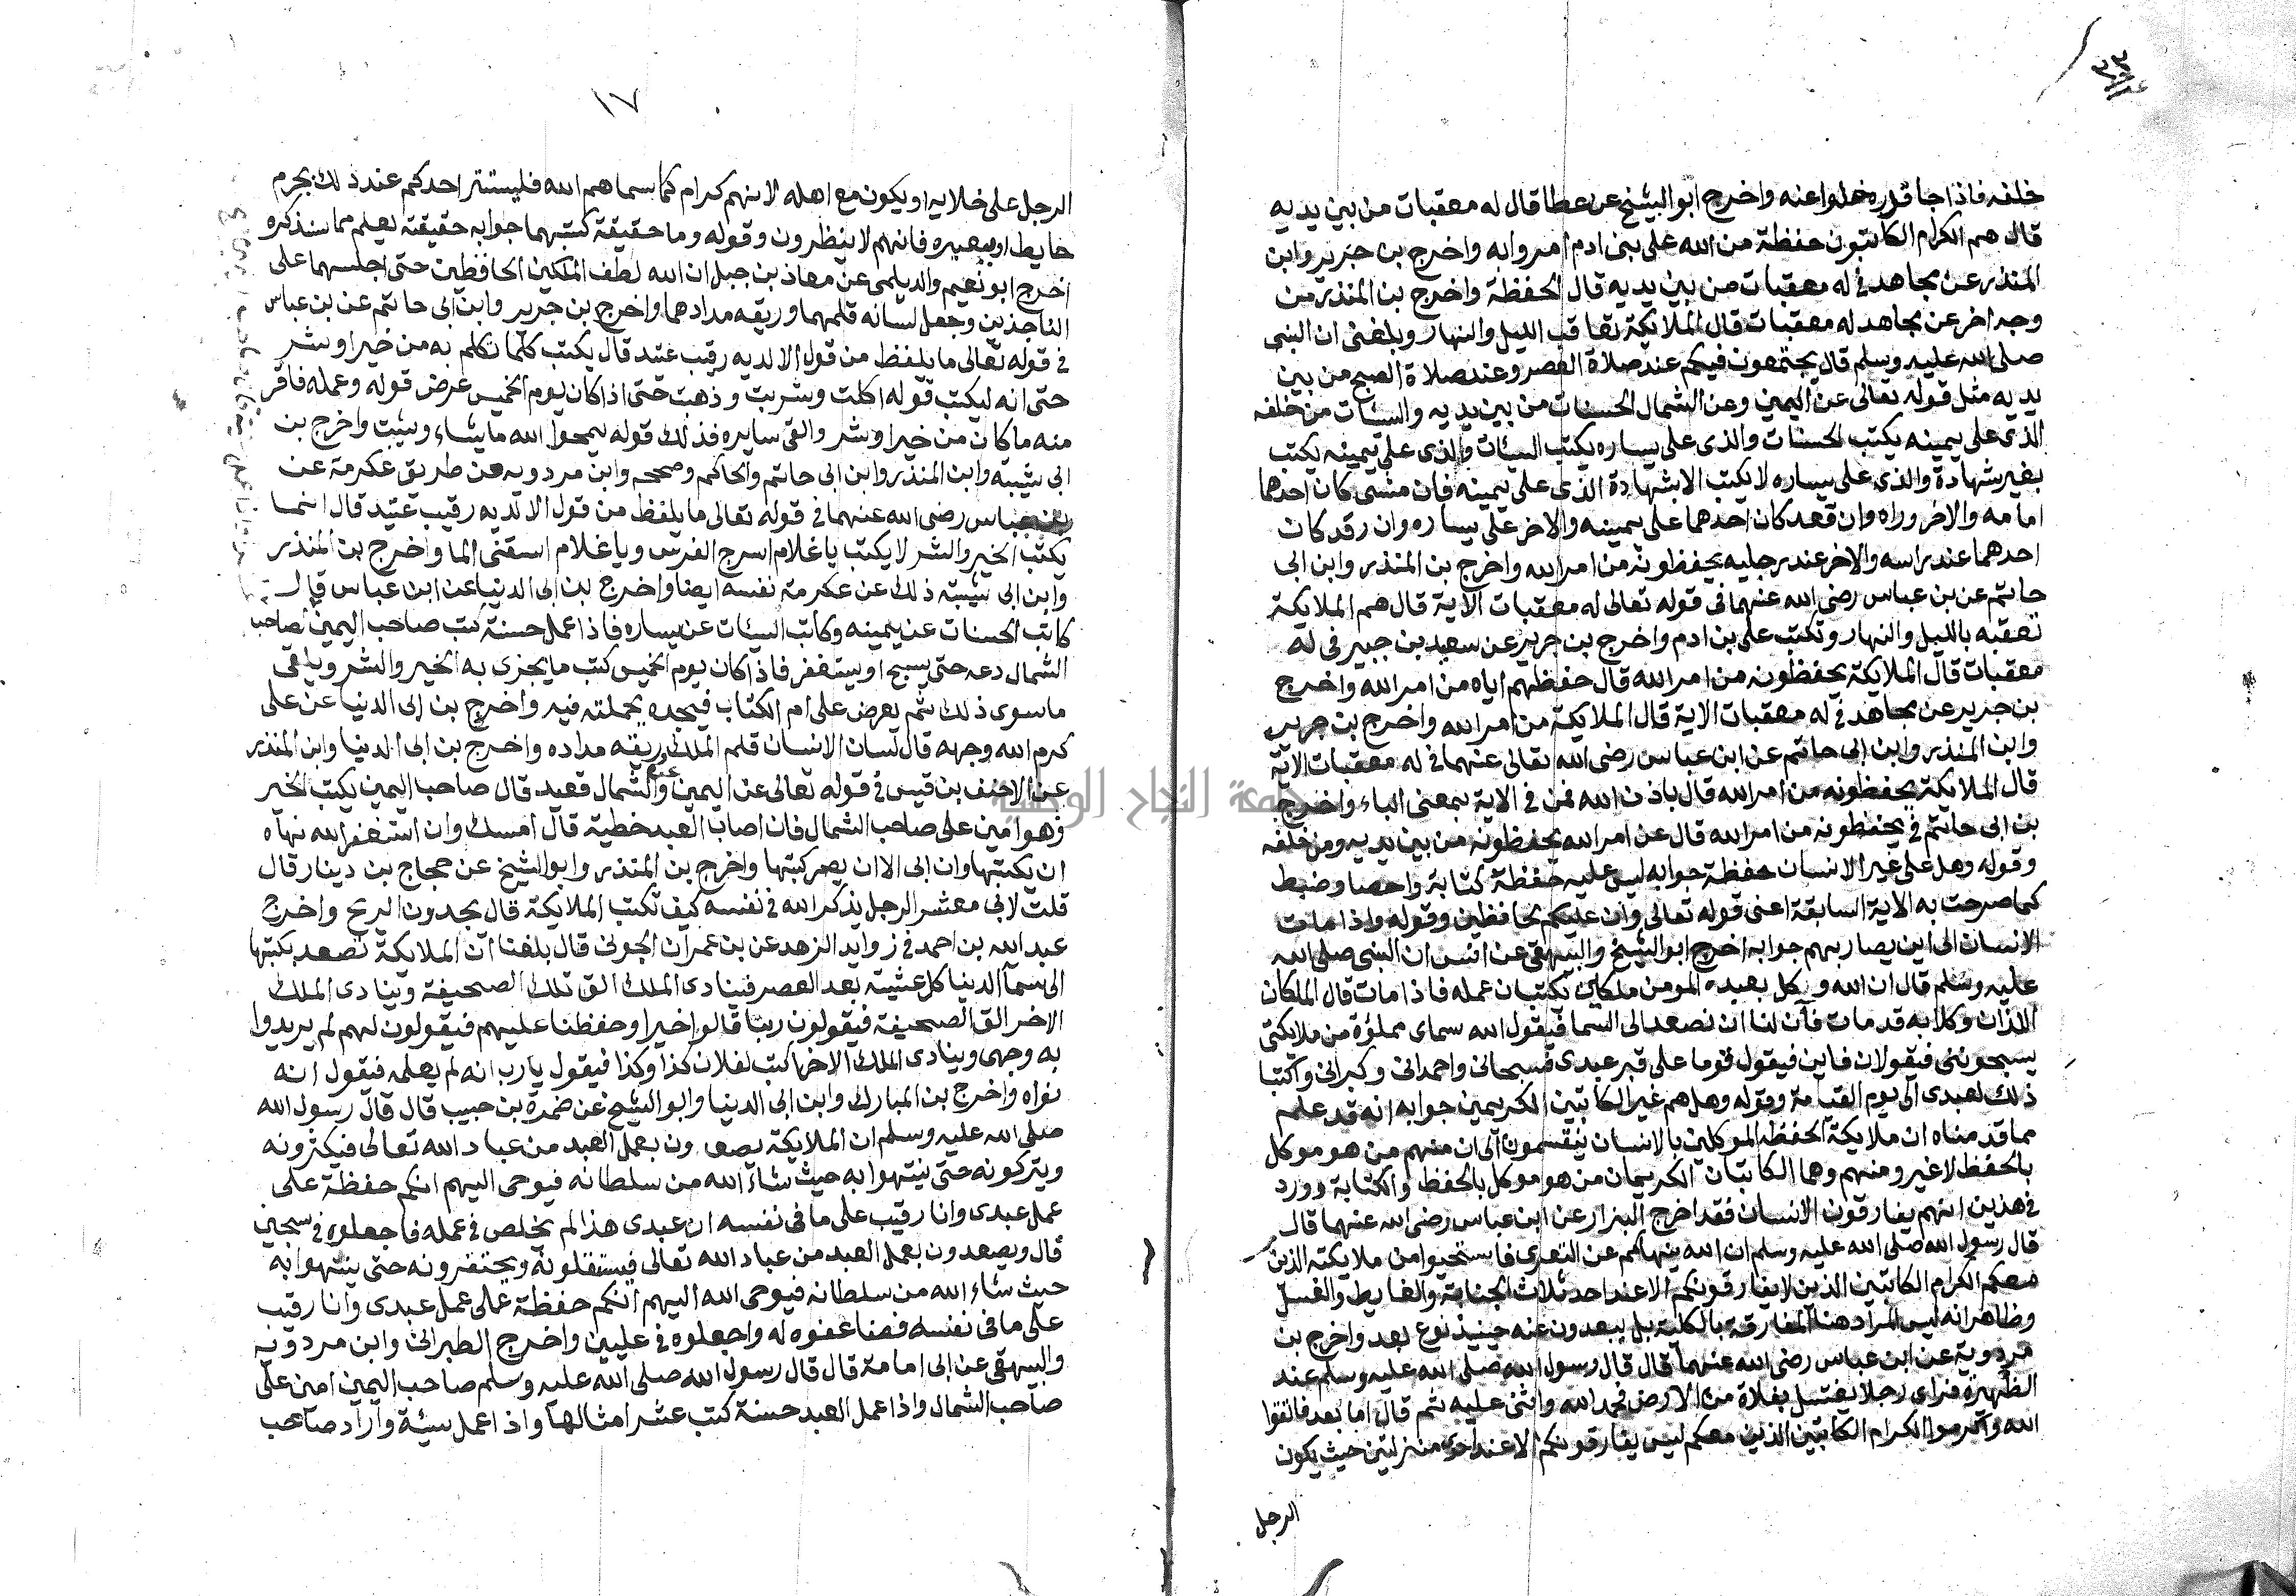 خلفه فاذا جا قدره خلوا عنه واخرج ابو الشيخ عن عطا قال له معقبات من بين يديه
قال هم الكرام الكاتبون حفظة من الله على بنى ادم امروا به واخرج بن جرير وابن
المنذر عن مجاهد فى له معقبات من بين يديه قال الحفظة واخرج بن المنذر من
وجه اخر عن مجاهد له معقبات قال الملايكة تعاقب الليل والنهار وبلغنى ان النبى
صلى الله عليه وسلم قال يجتمعون فيكم عند صلاة العصر وعند صلاة الصبح من بين
يديه مثل قوله تعالى عن اليمين وعن الشمال الحسنات من بين يديه والسيئات من خلفه
الذى على يمينه يكتب الحسنات والذى على يساره يكتب السيئات والذى على يمينه يكتب
بغير شهادة والذى على يساره لا يكتب الا بشهادة الذى على يمينه فان مشى كان احدهما
امامه والاخر وراه وان قعد كان احدهما على يمينه والاخر على يساره وان رقد كان
احدهما عند راسه والاخر عند رجليه يحفظونه من امر الله واخرج بن المنذر وابن ابى
حاتم عن بن عباس رضى الله عنهما فى قوله تعالى له معقبات الاية قال هم الملايكة
تعقبه بالليل والنهار وتكتب على بن ادم واخرج بن جرير عن سعيد بن جبير فى له
معقبات قال الملايكة يحفظونه من امر الله قال حفظهم اياه من امر الله واخرج
بن جرير عن مجاهد فى له معقبات الاية قال الملايكة من امر الله واخرج بن جرير
وابن المنذر وابن ابى حاتم عن ابن عباس رضى الله تعالى عنهما فى له معقبات الاية
قال الملايكة يحفظونه من امر الله قال باذن الله فمن فى الاية بمعنى الباء واخرج
بن ابى حاتم فى يحفظونه من امر الله قال عن امر الله يحفظونه من بين يديه ومن خلفه
وقوله وهل على غير الانسان حفظة جوابه ليس عليه حفظة كتابة واحصا وضبط
كما صرحت به الاية السابقة اعنى قوله تعالى وان عليكم لحافظين وقوله واذا مات
الانسان الى اين يصار بهم جوابه اخرج ابو الشيخ والبيهقى عن انس ان النبى صلى الله
عليه وسلم قال ان الله وكل بعبده المومن ملكين يكتبان عمله فاذا مات قال الملكان
اللذان وكلا به قد مات فأذن لنا ان نصعد الى السما فيقول الله سماى مملؤة من ملايكتى
يسبحونى فيقولان فاين فيقول قوما على قبر عبدى فسبحانى واحمدانى وكبرانى واكتبا
ذلك لعبدى الى يوم القيامة وقوله وهل هم غير الكاتبين الكريمين جوابه انه قد علم
مما قدمناه ان ملايكة الحفظه الموكلين بالانسان ينقسمون الى ان منهم من هو موكل
بالحفظ لا غير ومنهم وهما الكاتبان الكريمان من هو موكل بالحفظ والكتابة وورد
فى هذين انهم يفارقون الانسان فقد اخرج البزار عن ابن عباس رضى الله عنهما قال
قال رسول الله صلى الله عليه وسلم ان الله ينهاكم عن التعرى فاستحيوا من ملايكته الذين
معكم الكرام الكاتبين الذين لا يفارقونكم الا عند احد ثلاث الجنابة والغايط والغسل
وظاهر انه ليس المراد هنا المفارقة بالكلية بل يبعدون عنه حينيذ نوع بعد واخرج بن
مردوية عن ابن عباس رضى الله عنهما قال قال رسول الله صلى الله عليه وسلم عند
الظهيرة فراى رجلا يغتسل بفلاة من الارض فحمد الله واثنى عليه ثم قال اما بعد فاتقوا
الله واكرموا الكرام الكاتبين الذين معكم ليس يفارقونكم الا عند احدى منزلتين حيث يكون
الرجل
١٧
الرجل على خلايه او يكون مع اهله لانهم كرام كما سماهم الله فليستتر احدكم عند ذلك بجرم
حايط او ببعيره فانهم لا ينظرون وقوله وما حقيقة كتبهما جوابه حقيقته يعلم مما سنذكره
اخرج ابو نعيم والديلمى عن معاذ بن جبل ان الله لطف الملكين الحافظين حتى اجلسهما على
الناجذين وجعل لسانه قلمهما وريقه مدادهما واخرج بن جرير وابن ابى حاتم عن بن عباس
فى قوله تعالى ما يلفظ من قول الا لديه رقيب عتيد قال يكتب كلما تكلم به من خير او شر
حتى انه ليكتب قوله اكلت وشربت وذهبت حتى اذا كان يوم الخميس عرض قوله وعمله فاقر
منه ما كان من خير او شر والقى سايره فذلك قوله يمحوا الله ما يشاء ويثبت واخرج بن
ابى شيبه وابن المنذر وابن ابى حاتم والحاكم وصححه وابن مردويه من طريق عكرمة عن
عباس رضى الله عنهما فى قوله تعالى ما يلفظ من قول الا لديه رقيب عتيد قال انما
يكتب الخير والشر لا يكتب يا غلام اسرج الفرس ويا غلام اسقنى الما واخرج بن المنذر
وابن ابى شيبة ذلك عن عكرمة نفسه ايضا واخرج بن ابى الدنيا عن ابن عباس قال
كاتب الحسنات عن يمينه وكاتب السيئات عن يساره فاذا عمل حسنة كتب صاحب اليمين لصاحب
الشمال دعه حتى يسبح او يستغفر فاذا كان يوم الخميس كتب ما يجزى به الخير والشر ويلقى
ما سوى ذلك ثم يعرض على ام الكتاب فيجده بجملته فيه واخرج بن ابى الدنيا عن على
كرم الله وجهه قال لسان الانسان قلم الملك وريقه مداده واخرج بن ابى الدنيا وابن المنذر
عن الاحنف بن قيس فى قوله تعالى عن اليمين وعن الشمال قعيد قال صاحب اليمين يكتب الخير
وهو امين على صاحب الشمال فان اصاب العبد خطية قال امسك وان استغفر الله نهاه
ان يكتبها وان ابى الا ان يصر كتبها واخرج بن المنذر وابو الشيخ عن حجاج بن دينار قال
قلت لابى معشر الرجل يذكر الله فى نفسه كيف تكتب الملايكة قال يجدون الريح واخرج
عبد الله بن احمد فى زوايد الزهد عن بن عمران الجونى قال بلغنا ان الملايكة تصعد بكتبها
الى سما الدنيا كل عشية بعد العصر فينادى الملك الق تلك الصحيفة وينادى الملك
الاخر الق الصحيفة فيقولون ربنا قالوا خيرا وحفظنا عليهم فيقولون لهم لم يريدوا
به وجهى وينادى الملك الاخر اكتب لفلان كذا وكذا فيقول يا رب انه لم يعلمه فيقول انه
نواه واخرج بن المبارك وابن ابى الدنيا وابو الشيخ عن ضمرة بن حبيب قال قال رسول الله
صلى الله عليه وسلم ان الملايكة يصعدون بعمل العبد من عباد الله تعالى فيكثرونه
ويزكونه حتى ينتهوا به حيث شاء الله من سلطانه فيوحى اليهم انكم حفظة على
عمل عبدى وانا رقيب على ما فى نفسه ان عبدى هذا لم يخلص فى عمله فاجعلوه فى سجين
قال ويصعدون بعمل العبد من عباد الله تعالى فيستقلونه ويحتقرونه حتى ينتهوا به
حيث شاء الله من سلطانه فيوحى الله اليهم انكم حفظة على عمل عبدى وانا رقيب
على ما فى نفسه فضاعفوه له واجعلوه فى عليين واخرج الطبرانى وابن مردويه
والبيهقى عن ابى امامة قال قال رسول الله صلى الله عليه وسلم صاحب اليمين امين على
صاحب الشمال واذا عمل العبد حسنة كتب عشر امثالها واذا عمل سيئة واراد صاحب
جامعة النجاح الوطنية